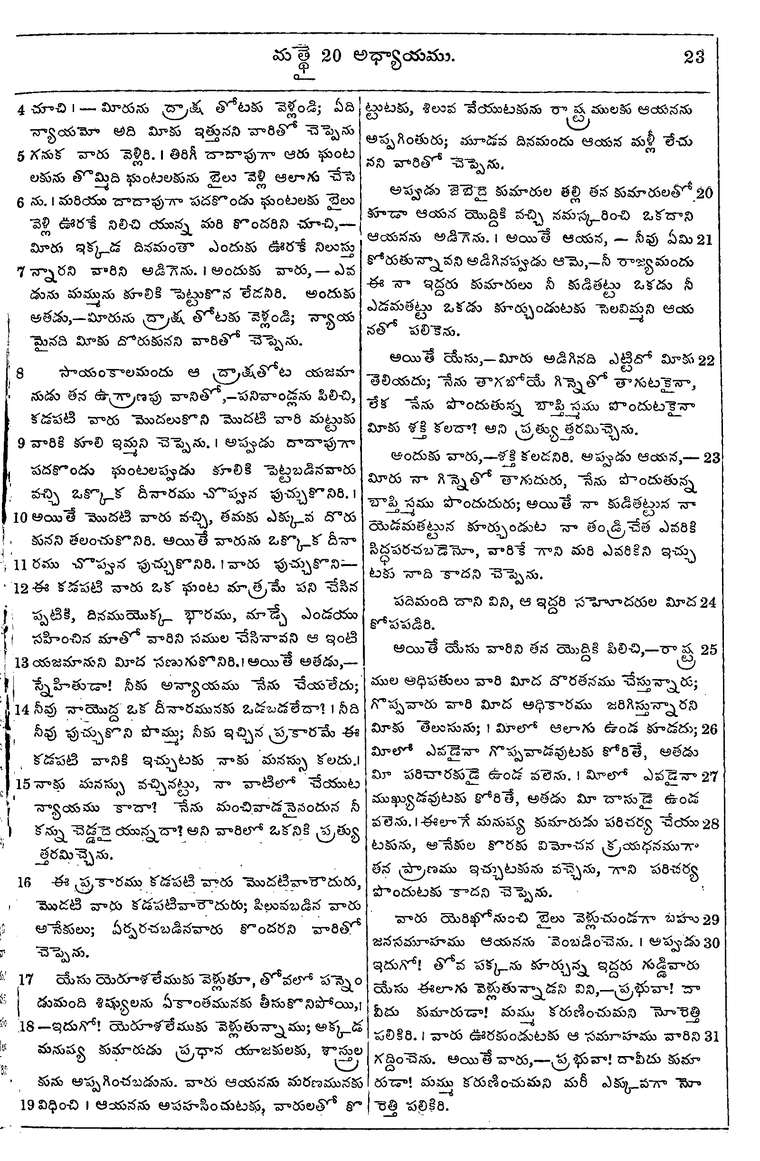 మత్థై 20 అధ్యాయము. 23
4 చూచి। — మీరును ద్రాక్ష తోటకు వెళ్లండి; ఏది
న్యాయమో అది మీకు ఇత్తునని వారితో చెప్పెను
5 గనుక వారు వెళ్లిరి. । తిరిగీ దాదాపుగా ఆరు ఘంట
లకును తొమ్మిది ఘంటలకును బైలు వెళ్లి ఆలాగు చేసె
6 ను. । మరియు దాదాపుగా పదకొండు ఘంటలకు బైలు
వెళ్లి ఊరకే నిలిచి యున్న మరి కొందరిని చూచి,—
మీరు ఇక్కడ దినమంతా ఎందుకు ఊరకే నిలుస్తు
7 న్నారని వారిని అడిగెను. । అందుకు వారు, — ఎవ
డును మమ్మును కూలికి పెట్టుకొన లేడనిరి. అందుకు
అతడు,—మీరును ద్రాక్ష తోటకు వెళ్లండి; న్యాయ
మైనది మీకు దొరుకునని వారితో చెప్పెను.
8 సాయంకాలమందు ఆ ద్రాక్షతోట యజమా
నుడు తన ఉగ్రాణపు వానితో,—పనివాండ్లను పిలిచి,
కడపటి వారు మొదలుకొని మొదటి వారి మట్టుకు
9 వారికి కూలి ఇమ్మని చెప్పెను. । అప్పుడు దాదాపుగా
పదకొండు ఘంటలప్పుడు కూలికి పెట్టబడినవారు
వచ్చి ఒక్కొక దీనారము చొప్పున పుచ్చుకొనిరి. ।
10 అయితే మొదటి వారు వచ్చి, తమకు ఎక్కువ దొరు
కునని తలంచుకొనిరి. అయితే వారును ఒక్కొక దీనా
11 రము చొప్పున పుచ్చుకొనిరి. । వారు పుచ్చుకొని—
12 ఈ కడపటి వారు ఒక ఘంట మాత్రమే పని చేసిన
ప్పటికి, దినముయొక్క భారము, మాడ్చే ఎండయు
సహించిన మాతో వారిని సముల చేసినావని ఆ ఇంటి
13 యజమానుని మీద సణుగుకొనిరి. । అయితే అతడు,—
స్నేహితుడా! నీకు అన్యాయము నేను చేయలేదు;
14 నీవు నాయొద్ద ఒక దీనారమునకు ఒడబడలేదా? । నీది
నీవు పుచ్చుకొని పొమ్ము; నీకు ఇచ్చిన ప్రకారమే ఈ
కడపటి వానికి ఇచ్చుటకు నాకు మనస్సు కలదు.।
15 నాకు మనస్సు వచ్చినట్టు, నా వాటిలో చేయుట
న్యాయము కాదా? నేను మంచివాడనైనందున నీ
కన్ను చెడ్డదై యున్నదా? అని వారిలో ఒకనికి ప్రత్యు
త్తరమిచ్చెను.
16 ఈ ప్రకారము కడపటి వారు మొదటివారౌదురు,
మొదటి వారు కడపటివారౌదురు; పిలువబడిన వారు
అనేకులు; ఏర్పరచబడినవారు కొందరని వారితో
చెప్పెను.
17 యేసు యెరూశలేముకు వెళ్లుతూ, తోవలో పన్నెం
డుమంది శిష్యులను ఏకాంతమునకు తీసుకొనిపోయి,।
18 —ఇదుగో! యెరూశలేముకు వెళ్లుతున్నాము; అక్కడ
మనుష్య కుమారుడు ప్రధాన యాజకులకు, శాస్త్రుల
కును అప్పగించబడును. వారు ఆయనను మరణమునకు
19 విధించి । ఆయనను అపహసించుటకు, వారులతో కొ
ట్టుటకు, శిలువ వేయుటకును రాష్ట్రములకు ఆయనను
అప్పగింతురు; మూడవ దినమందు ఆయన మళ్లీ లేచు
నని వారితో చెప్పెను.
అప్పుడు జెబెదై కుమారుల తల్లి తన కుమారులతో 20
కూడా ఆయన యొద్దికి వచ్చి నమస్కరించి ఒకదాని
ఆయనను అడిగెను. । అయితే ఆయన, — నీవు ఏమి 21
కోరుతున్నావని అడిగినప్పుడు ఆమె,—నీ రాజ్యమందు
ఈ నా ఇద్దరు కుమారులు నీ కుడితట్టు ఒకడు నీ
ఎడమతట్టు ఒకడు కూర్చుండుటకు సెలవిమ్మని ఆయ
నతో పలికెను.
అయితే యేసు,—మీరు అడిగినది ఎట్టిదో మీకు 22
తెలియదు; నేను తాగబోయే గిన్నెతో తాగుటకైనా,
లేక నేను పొందుతున్న బాప్తిస్మము పొందుటకైనా
మీకు శక్తి కలదా? అని ప్రత్యుత్తరమిచ్చెను.
అందుకు వారు,—శక్తి కలదనిరి. అప్పుడు ఆయన,— 23
మీరు నా గిన్నెతో తాగుదురు, నేను పొందుతున్న
బాప్తిస్మము పొందుదురు; అయితే నా కుడితట్టున నా
యెడమతట్టున కూర్చుండుట నా తండ్రిచేత ఎవరికి
సిద్ధపరచబడెనో, వారికే గాని మరి ఎవరికిని ఇచ్చు
టకు నాది కాదని చెప్పెను.
పదిమంది దాని విని, ఆ ఇద్దరి సహోదరుల మీద 24
కోపపడిరి.
అయితే యేసు వారిని తన యొద్దికి పిలిచి,—రాష్ట్ర 25
ముల అధిపతులు వారి మీద దొరతనము చేస్తున్నారు;
గొప్పవారు వారి మీద అధికారము జరిగిస్తున్నారని
మీకు తెలుసును; । మీలో ఆలాగు ఉండ కూడదు; 26
మీలో ఎవడైనా గొప్పవాడవుటకు కోరితే, అతడు
మీ పరిచారకుడై ఉండ వలెను. । మీలో ఎవడైనా 27
ముఖ్యుడవుటకు కోరితే, అతడు మీ దాసుడై ఉండ
వలెను. । ఈలాగే మనుష్య కుమారుడు పరిచర్య చేయు 28
టకును, అనేకుల కొరకు విమోచన క్రయధనముగా
తన ప్రాణము ఇచ్చుటకును వచ్చెను, గాని పరిచర్య
పొందుటకు కాదని చెప్పెను.
వారు యెరిఖోనుంచి బైలు వెళ్లుచుండగా బహు 29
జనసమూహము ఆయనను వెంబడించెను. । అప్పుడు 30
ఇదుగో! తోవ పక్కను కూర్చున్న ఇద్దరు గుడ్డివారు
యేసు ఈలాగు వెళ్లుతున్నాడని విని,—ప్రభువా! దా
వీదు కుమారుడా! మమ్ము కరుణించుమని మొరెత్తి
పలికిరి. । వారు ఊరకుండుటకు ఆ సమూహము వారిని 31
గద్దించెను. అయితే వారు,—ప్రభువా! దావీదు కుమా
రుడా! మమ్ము కరుణించుమని మరీ ఎక్కువగా మొ
రెత్తి పలికిరి.